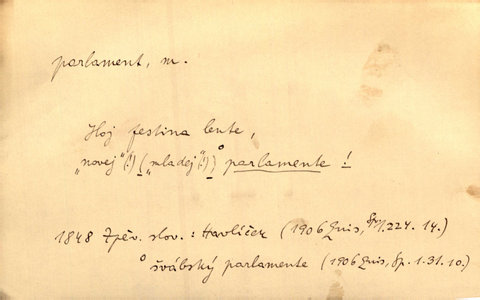 parlament, m.
Hoj festina lente,
„novej"(!) („mladej"(!)) ° parlamente !
1848 Zpěv. slov. : Havlíček (1906 Quis, Sp. 1.224. 14.)
° švábský parlamente (1906 Quis, Sp. 1.31.10.)